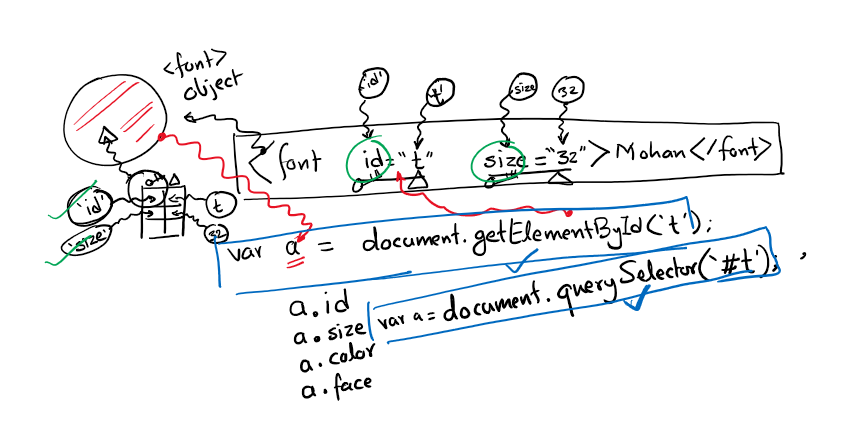 <font>
object
'id'
't'
size
32
<font id="t" size="32">Mohan</font>
'id'
t
'size'
32
var a = document.getElementById('t');
var a = document.querySelector('#t');
,
a.id
a.size
a.color
a.face